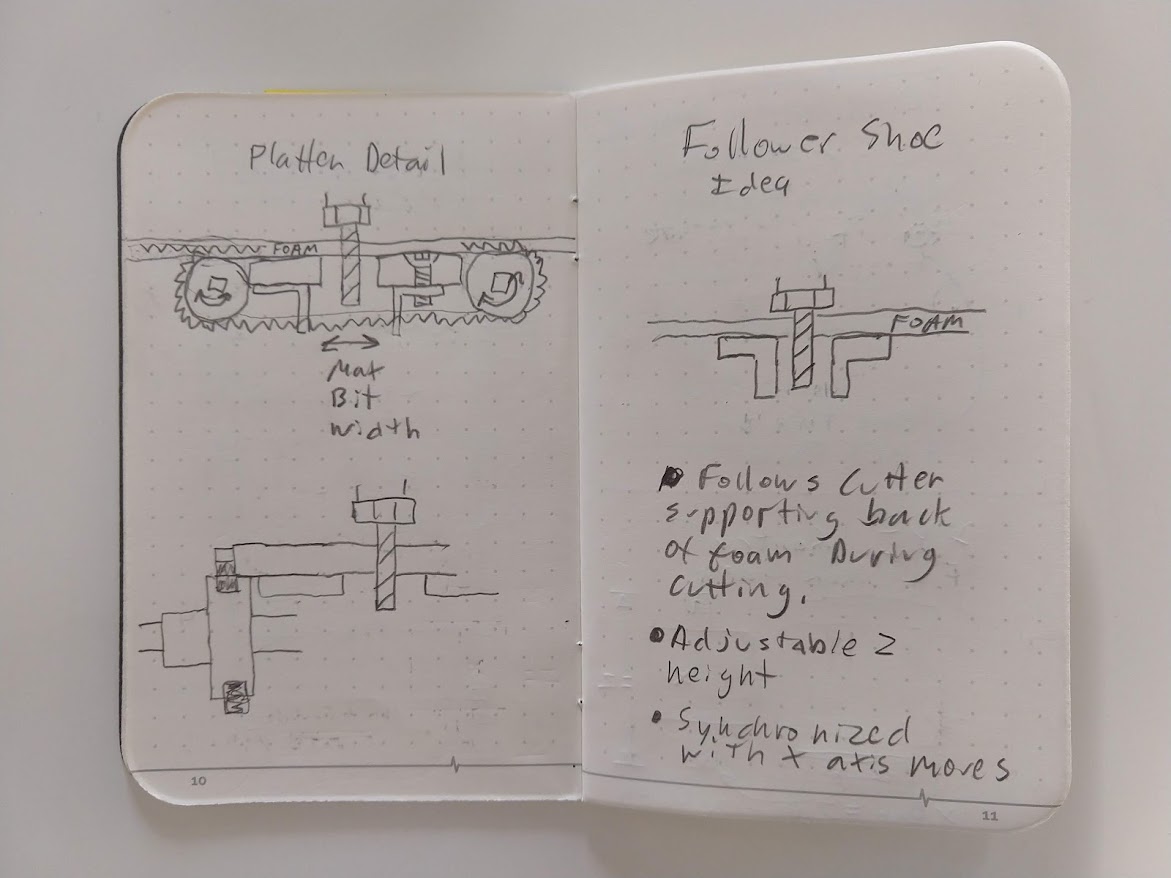 Platten Detail
FOAM
Max
Bit
width
10
Follower Shoe
Idea
FOAM
Follows Cutter
supporting back
of foam During
Cutting.
Adjustable Z
height
Synchronized
with X axis moves
11